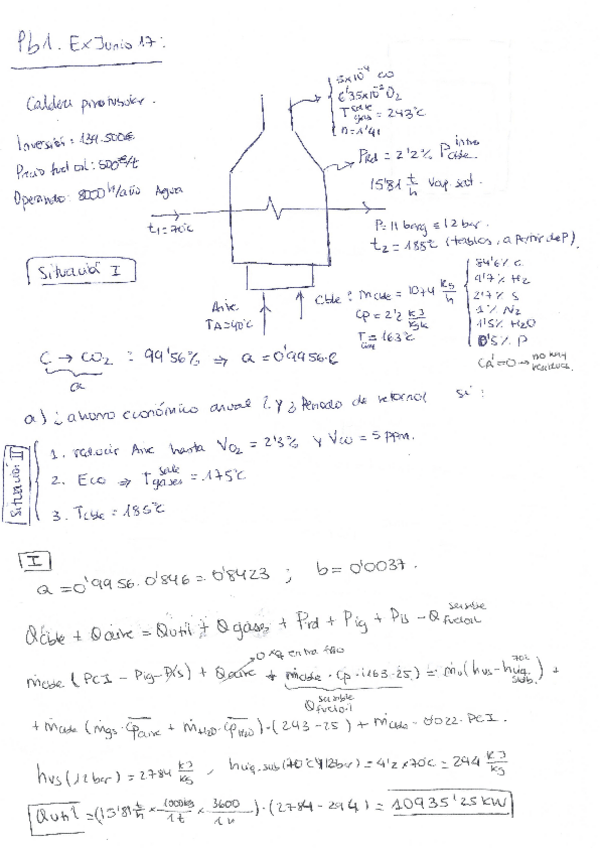 Pb1. Ex Junio 17:
Caldera pirotubular.
Inversión: 134.500€
Precio fuel oil: 500 €/t
Operando: 8000 h/año
Agua
t1 = 70°C
5x10⁻⁴ CO
6'35x10⁻² O2
T gas sale = 243°C
n = 1'41
Prd = 2'2% P cble. intro
15'81 t/h Vap. sat.
P = 11 barg ≈ 12 bar.
t2 = 188°C (tablas, a partir de P).
Situación I
Aire
TA = 40°C
Cble: m cble = 1074 kg/h
Cp = 2'2 kJ/kgK
T = 163°C
84'6% C.
9'7% H2
2'7% S
1% N2
1'5% H2O
0'5% P
CA' = 0 → no hay
C → CO2 : 99'56% ⇒ a = 0'9956·C
a
a) ¿ahorro económico anual? y ¿Periodo de retorno? si:
Situación II
1. reducir Aire hasta VO2 = 2'3% y VCO = 5 ppm.
2. Eco ⇒ T gases sale = 175°C
3. Tcble = 185°C
I
a = 0'9956·0'846 = 0'8423 ; b = 0'0037.
Qcble + Qaire = Qutil + Qgases + Prd + Pig + Pis - Q fueloil sensible
m cble (PCI - Pig - Pis) + Qaire + m cble · Cp · (163-25) = mv (hvs - hliq. subb. 70°) +
0 xq entra frío
Q fueloil sensible
+ m cble (mgs · Cp aire + mH2O · Cp H2O) · (243-25) + m cble · 0'022 · PCI.
hvs (12 bar) = 2784 kJ/kg , hliq.sub (70°C y 12 bar) = 4'2 x 70°C = 294 kJ/kg
Qutil = (15'81 t/h x 1000kg/1t x 3600/1h) · (2784 - 294) = 10935'25 KW